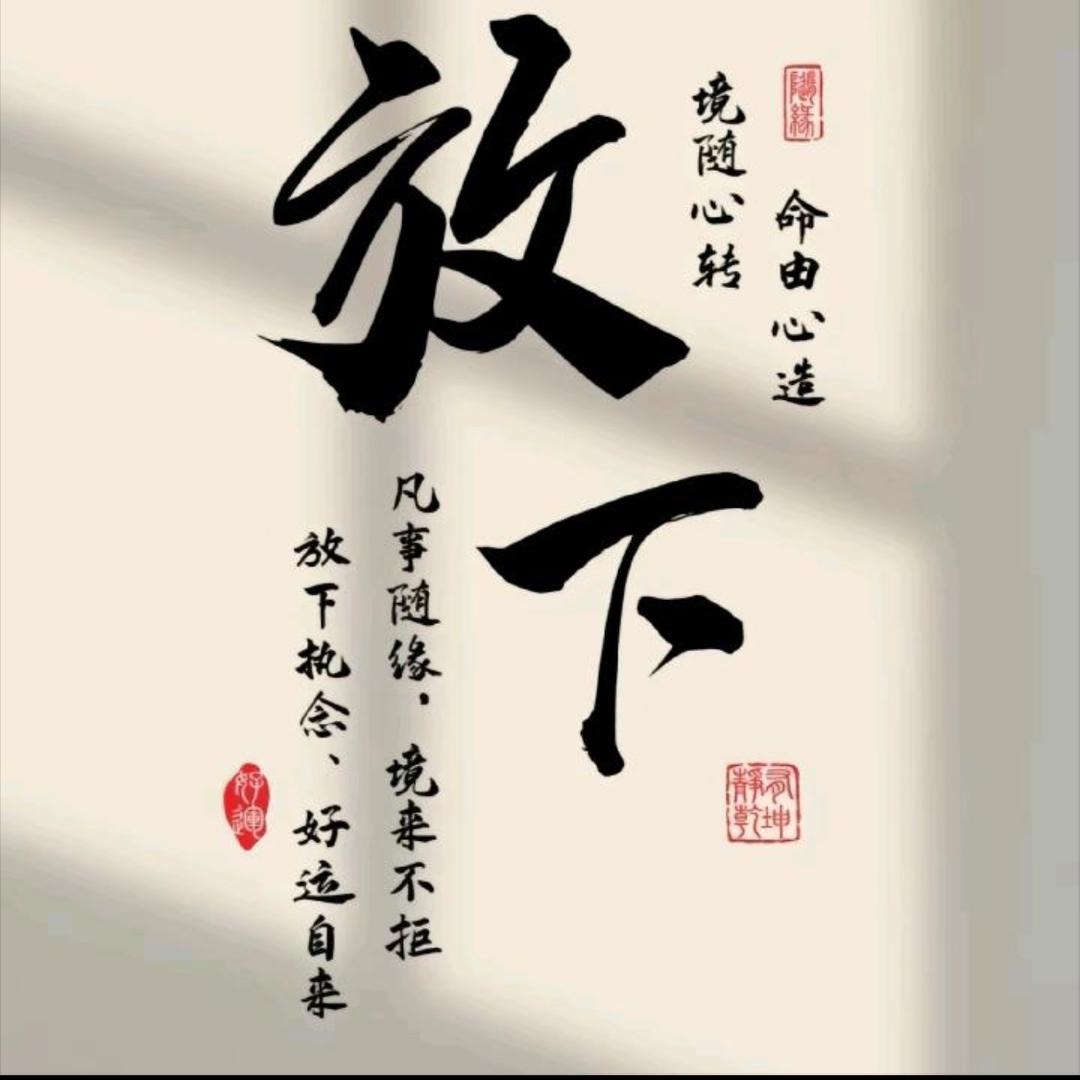 随缘
命由心造
境随心转
放下
凡事随缘，境来不拒
放下执念、好运自来
静乾坤
好運